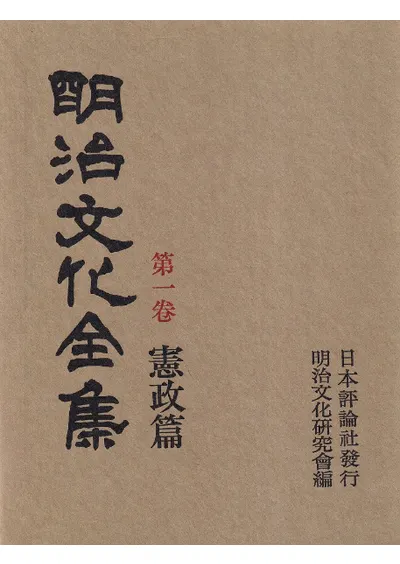 明治文化全集
第一卷 憲政篇
日本評論社發行
明治文化研究會編